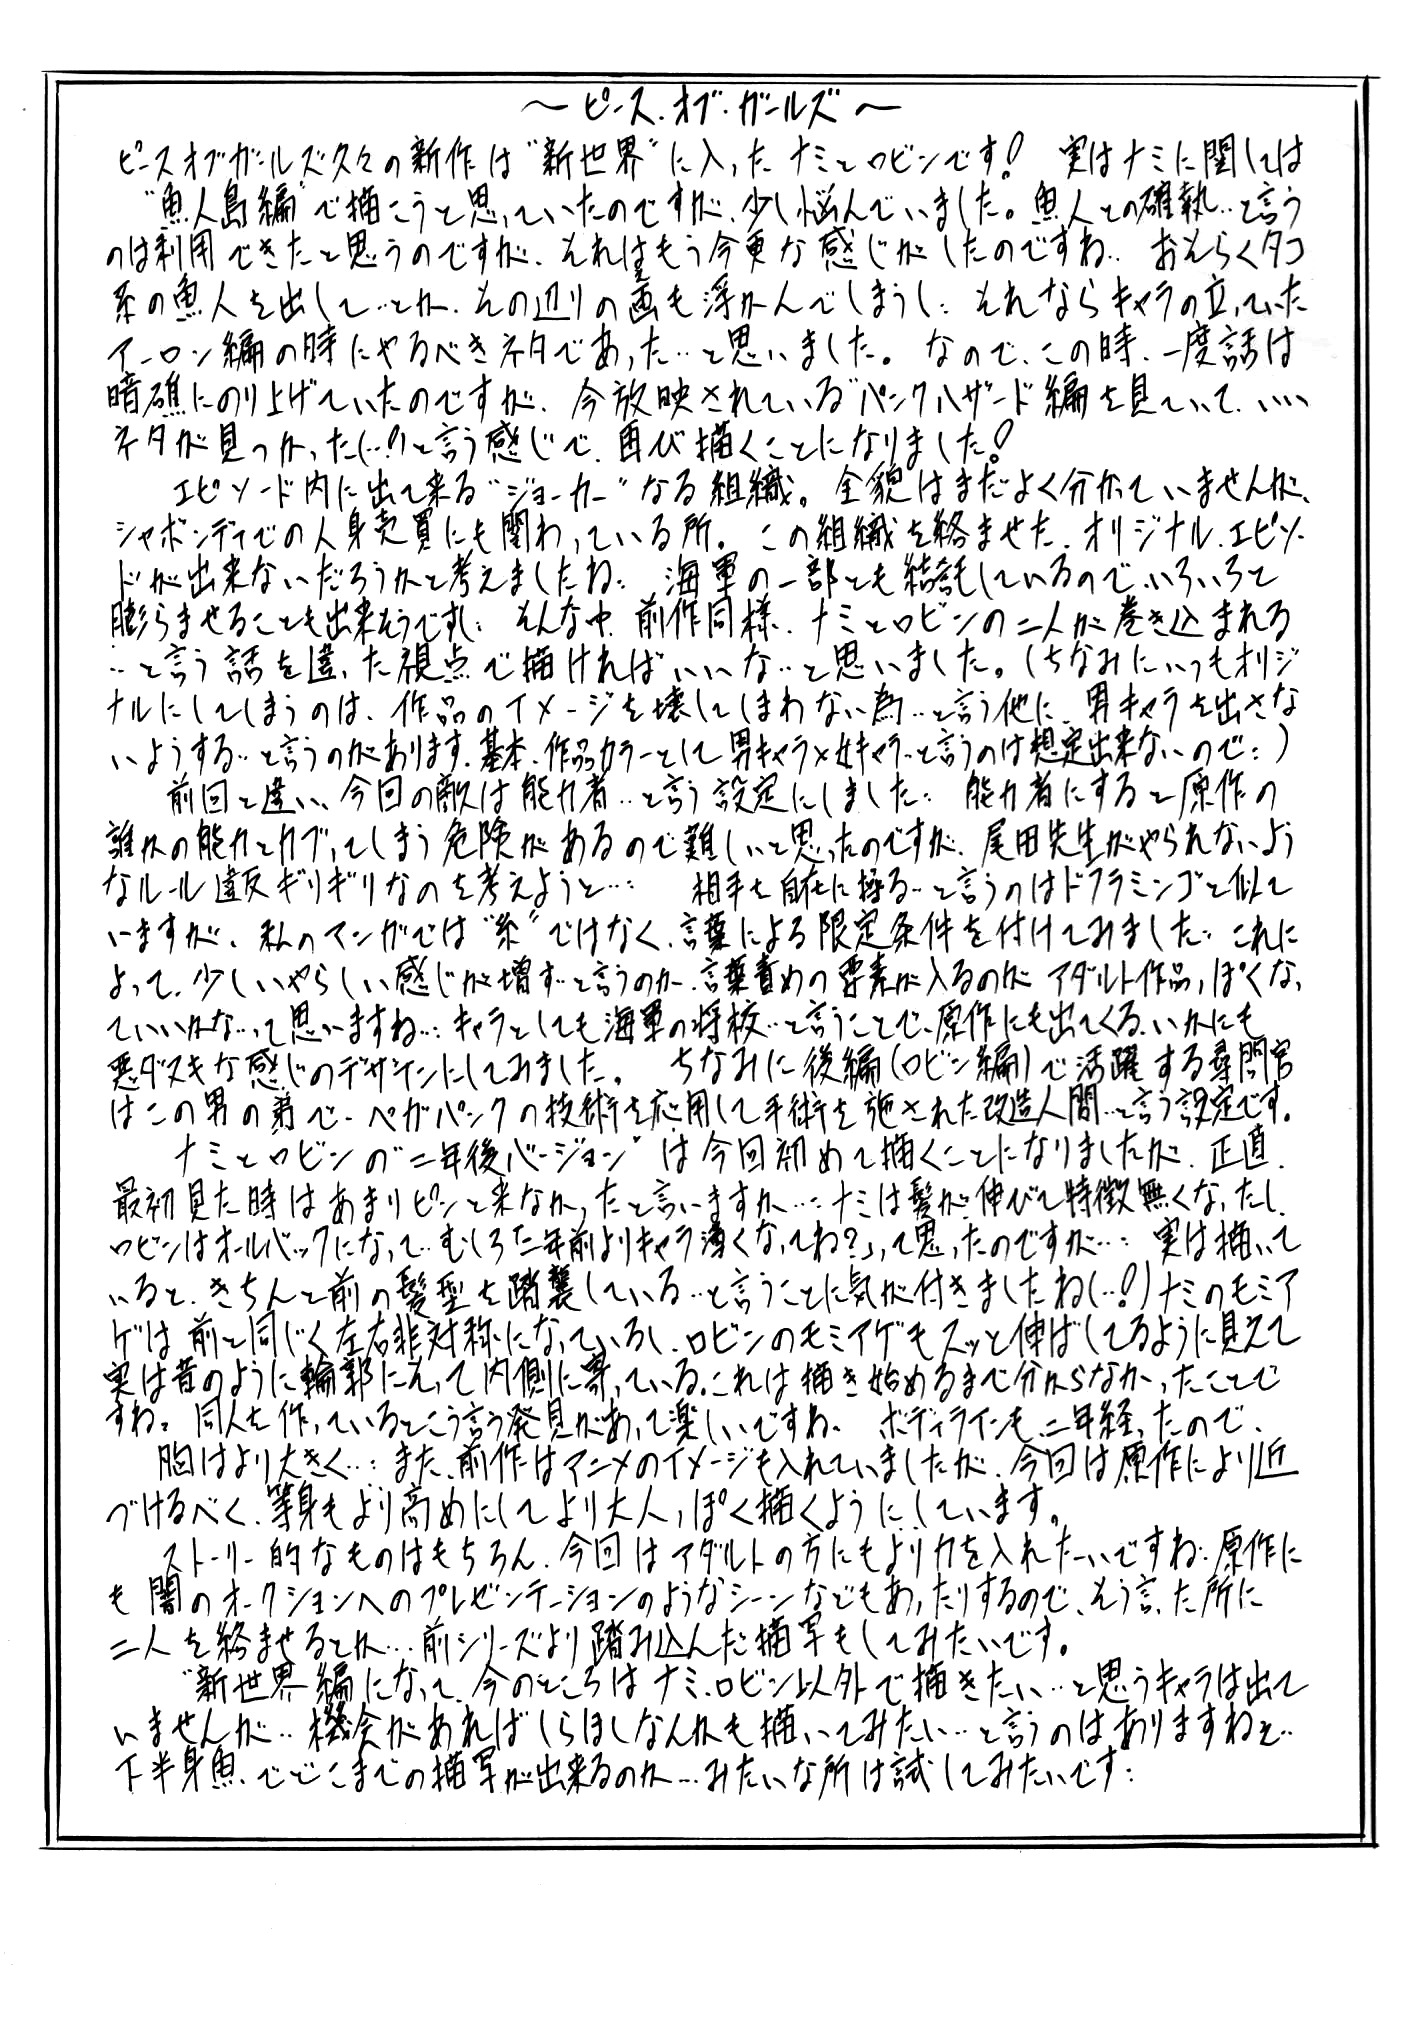 ～ピース.オブ.ガールズ～
ピースオブガールズ久々の新作は"新世界"に入ったナミとロビンです! 実はナミに関しては
"魚人島編"で描こうと思っていたのですが、少し悩んでいました。魚人との確執‥と言う
のは利用できたと思うのですが、それはもう今更な感じがしたのですね‥ おそらくタコ
系の魚人を出して‥とか、その辺りの画も浮かんでしまうし‥ それならキャラの立っていた
アーロン編の時にやるべきネタであった‥と思いました。なので、この時、一度話は
暗礁にのり上げていたのですが、今放映されている"パンクハザード編を見ていて、いい
ネタが見つかった(‥!)と言う感じで、再び描くことになりました!
エピソード内に出て来る"ジョーカー"なる組織。全貌はまだよく分かっていませんが、
シャボンディでの人身売買にも関わっている所。この組織を絡ませた、オリジナル、エピソー
ドが出来ないだろうかと考えましたね‥ 海軍の一部とも結託しているので、いろいろと
膨らませることも出来そうですし‥ そんな中、前作同様、ナミとロビンの二人が巻き込まれる
‥と言う話を違った視点で描ければいいな‥と思いました。(ちなみにいつもオリジ
ナルにしてしまうのは、作品のイメージを壊してしまわない為‥と言う他に、男キャラを出さな
いようする‥と言うのがあります、基本、作品カラーとして男キャラ×女キャラ‥と言うのは想定出来ないので‥)
前回と違い、今回の敵は能力者‥と言う設定にしました‥ 能力者にすると原作の
誰かの能力とカブってしまう危険があるので難しいと思ったのですが、尾田先生がやられないよう
なルール違反ギリギリなのを考えようと‥‥ 相手を自在に操る‥と言うのはドフラミンゴと似て
いますが、私のマンガでは"糸"ではなく、言葉による限定条件を付けてみました‥ これに
よって、少しいやらしい感じが増す‥と言うのか、言葉責めの要素が入るのがアダルト作品っぽくなっ
ていいかな‥って思いますね‥‥キャラとしても海軍の将校‥と言うことで、原作にも出てくる、いかにも
悪ダスキな感じのデザインにしてみました。 ちなみに後編(ロビン編)で活躍する尋問官
はこの男の弟で、ベガパンクの技術を応用して手術を施された改造人間‥と言う設定です。
ナミとロビンの"二年後バージョン"は今回初めて描くことになりましたが、正直、
最初見た時はあまりピンと来なかったと言いますか‥‥ナミは髪が伸びて特徴無くなったし、
ロビンはオールバックになって‥むしろ「二年前よりキャラ薄くなってね?」って思ったのですが‥‥ 実は描いて
いると、きちんと前の髪型を踏襲している‥と言うことに気が付きましたね(‥!)ナミのモミア
ゲは前と同じく左右非対称になっているし、ロビンのモミアゲもスッと伸ばしてるように見えて
実は昔のように輪郭にそって内側に寄っている。これは描き始めるまで分からなかったことで
すね。同人を作っているとこう言う発見があって楽しいですね、 ボディラインも、二年経ったので、
胸はより大きく‥‥また、前作はアニメのイメージも入れていましたが、今回は原作により近
づけるべく、等身もより高めにしてより大人っぽく描くようにしています。
ストーリー的なものはもちろん、今回はアダルトの方にもより力を入れたいですね‥原作に
も闇のオークションへのプレゼンテーションのようなシーンなどもあったりするので、そう言った所に
二人を絡ませるとか‥‥前シリーズより踏み込んだ描写もしてみたいです。
"新世界"編になって、今のところはナミ、ロビン以外で描きたい‥と思うキャラは出て
いませんが‥機会があればしらほしなんかも描いてみたい‥と言うのはありますねぇ‥
下半身魚、でどこまでの描写が出来るのか‥‥みたいな所は試してみたいです‥